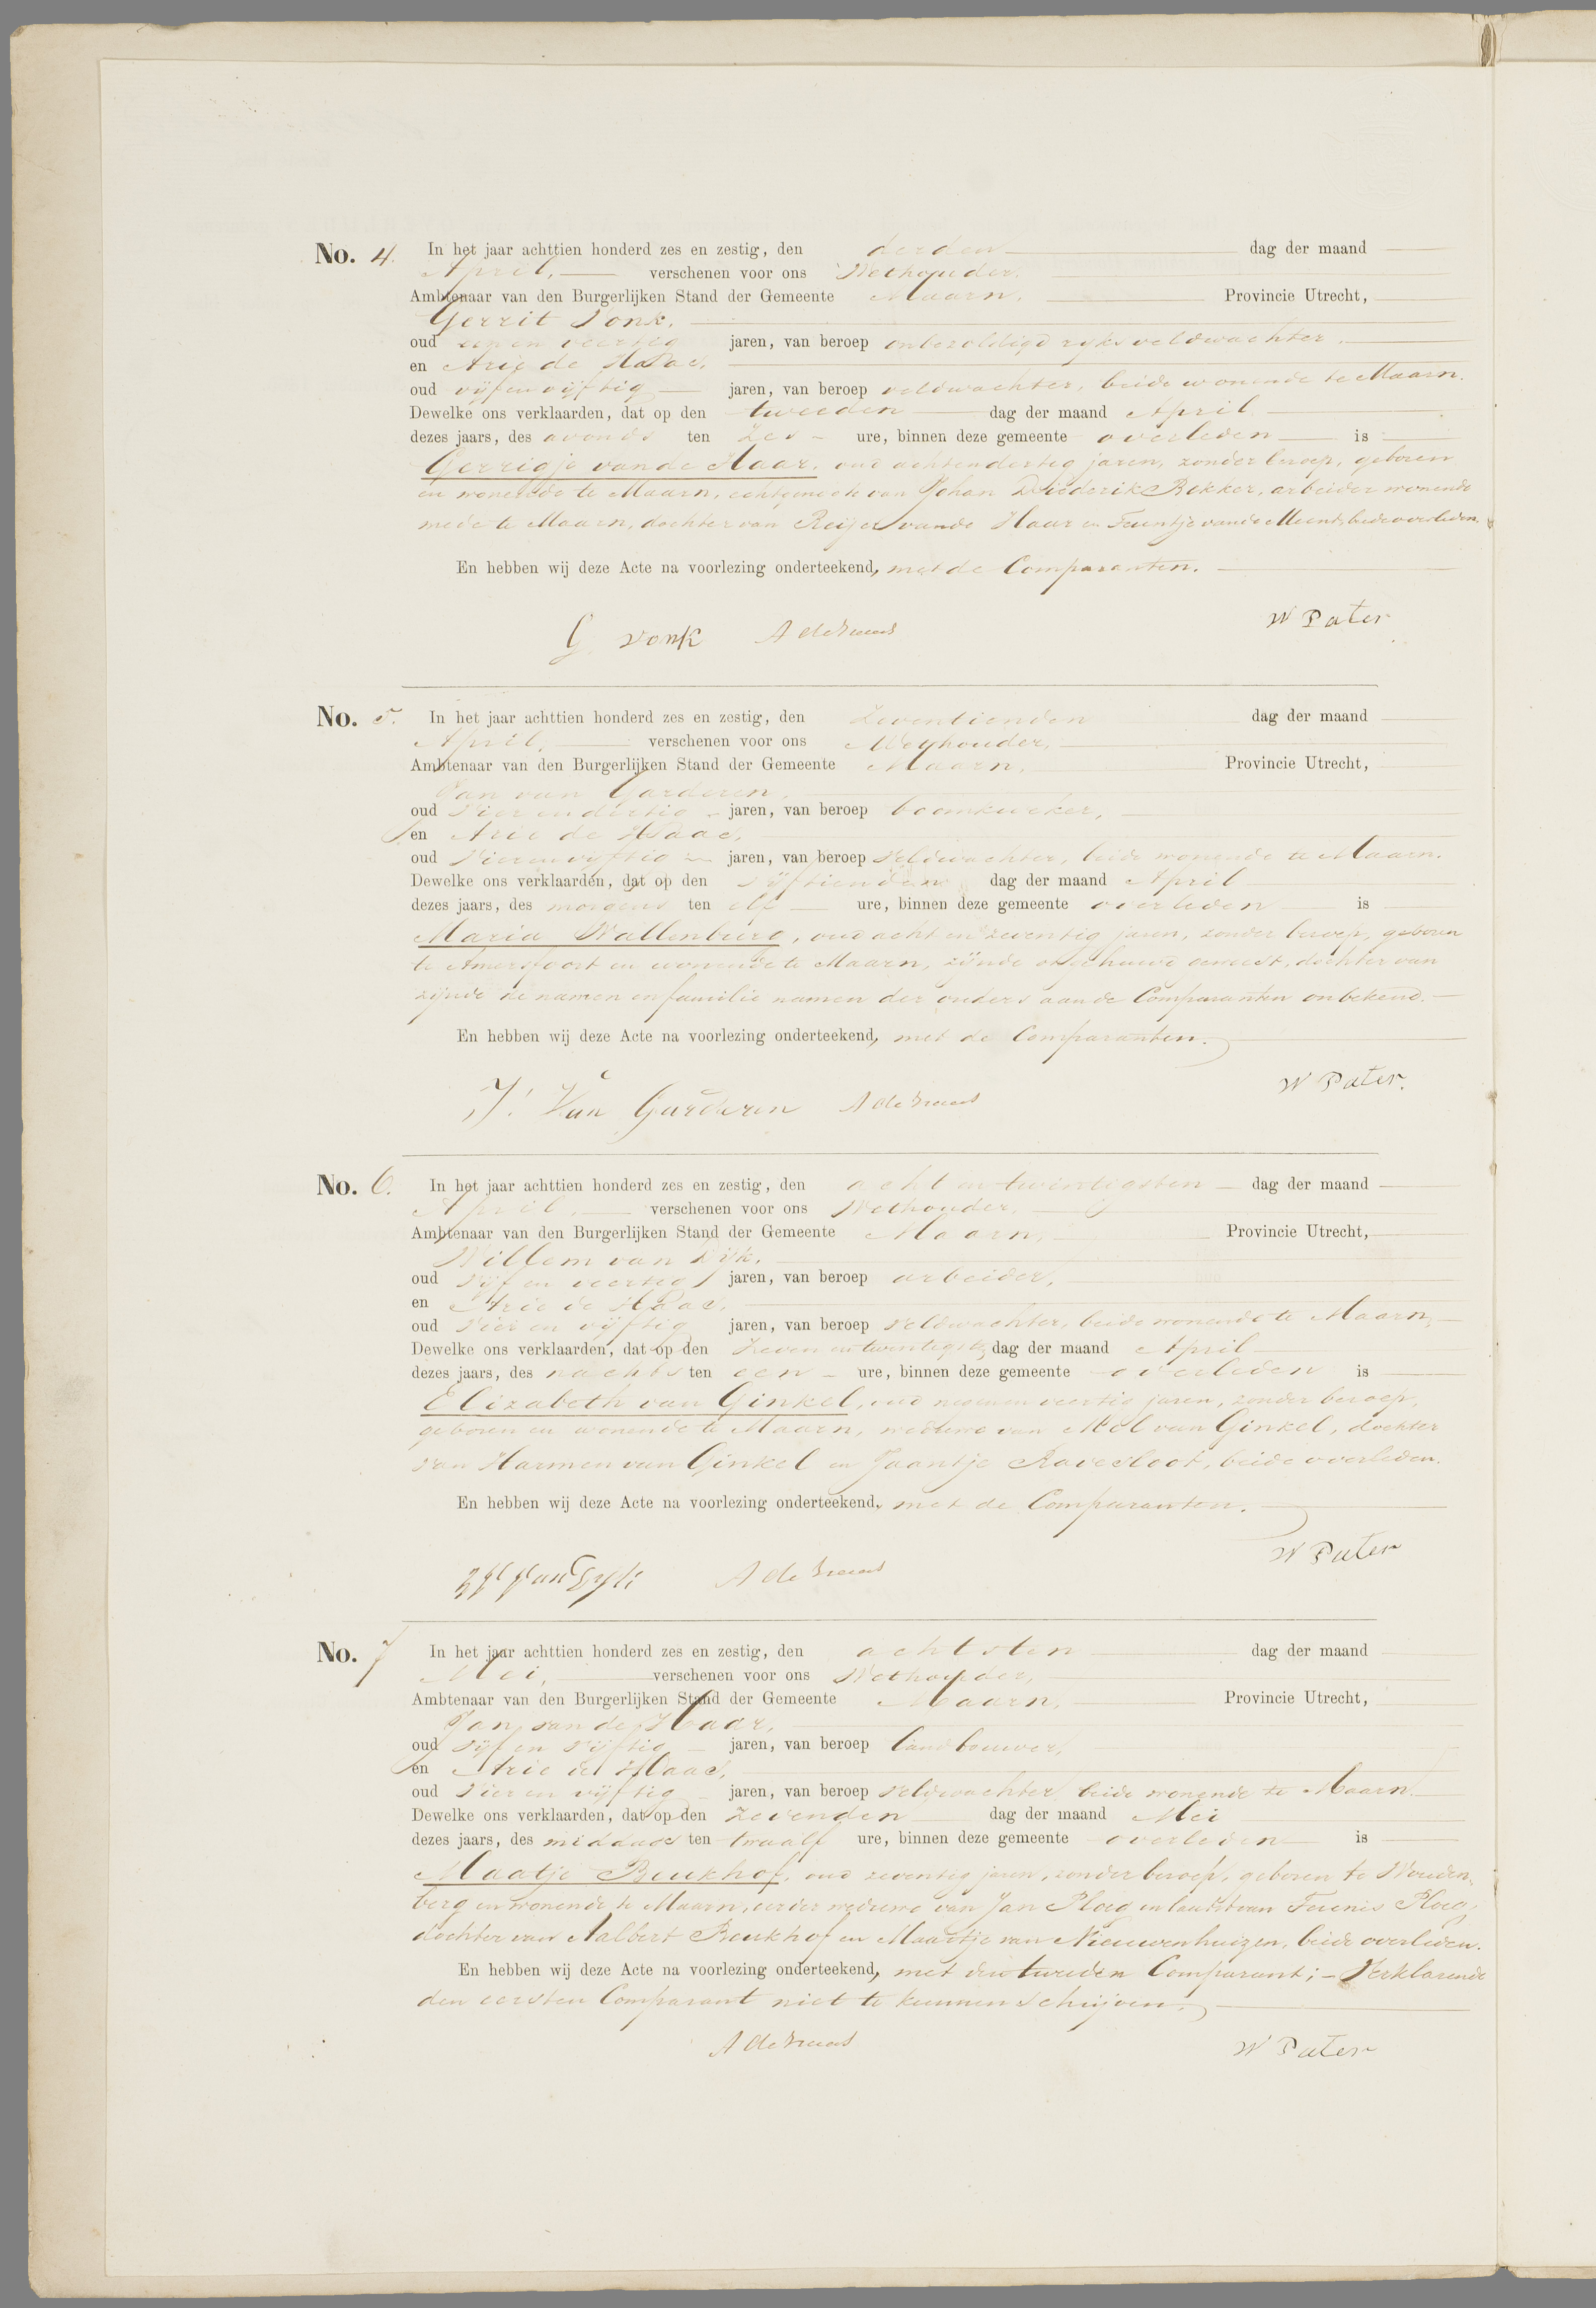 No. 4. In het jaar achttien honderd zes en zestig, den derden dag der maand
April, verschenen voor ons Wethouder.
Ambtenaar van den Burgerlijken Stand der Gemeente Maarn, Provincie Utrecht,
Gerrit Vonk.
oud een en veertig jaren, van beroep onbezoldigd ryks veldwachter.
en Arie de Haas,
oud vijf en vijftig jaren, van beroep veldwachter, beide wonende te Maarn.
Dewelke ons verklaarden, dat op den tweeden dag der maand April
dezes jaars, des avonds ten zes ure, binnen deze gemeente overleden is
Gerrigje van de Haar, oud achtendertig jaren, zonder beroep, geboren
en wonende te Maarn, echtgenoote van Johan Diederik Bekker, arbeider wonende
mede te Maarn, dochter van Reijer van de Haar en Teuntje van de Meent, beide overleden.
En hebben wij deze Acte na voorlezing onderteekend, met de Comparanten.
G. Vonk A de Haas W Pater
No. 5. In het jaar achttien honderd zes en zestig, den Zeventienden dag der maand
April, verschenen voor ons Wethouder,
Ambtenaar van den Burgerlijken Stand der Gemeente Maarn, Provincie Utrecht,
Jan van Garderen,
oud Vier en dertig jaren, van beroep boomkweker,
en Arie de Haas,
oud Vier en vijftig jaren, van beroep veldwachter, beide wonende te Maarn.
Dewelke ons verklaarden, dat op den Vijftienden dag der maand April
dezes jaars, des morgens ten elf ure, binnen deze gemeente overleden is
Maria Wallenburg, oud acht en zeventig jaren, zonder beroep, geboren
te Amersfoort en wonende te Maarn, zijnde ongehuwd geweest, dochter van
zijnde de namen en familie namen der ouders aan de Comparanten onbekend.
En hebben wij deze Acte na voorlezing onderteekend, met de Comparanten.
J. Van Garderen A de Haas W Pater.
No. 6. In het jaar achttien honderd zes en zestig, den acht en twintigsten dag der maand
April, verschenen voor ons Wethouder,
Ambtenaar van den Burgerlijken Stand der Gemeente Maarn, Provincie Utrecht,
Willem van Dijk,
oud Vijf en veertig jaren, van beroep arbeider,
en Arie de Haas,
oud Vier en vijftig jaren, van beroep veldwachter, beide wonende te Maarn,
Dewelke ons verklaarden, dat op den Zeven en twintigste dag der maand April
dezes jaars, des nachts ten een ure, binnen deze gemeente overleden is
Elizabeth van Ginkel, oud negen en veertig jaren, zonder beroep,
geboren en wonende te Maarn, weduwe van Mol van Ginkel, dochter
van Harmen van Ginkel en Jaantje Ravesloot, beide overleden.
En hebben wij deze Acte na voorlezing onderteekend, met de Comparanten.
W van Dijk A de Haas W Pater
No. 7 In het jaar achttien honderd zes en zestig, den achtsten dag der maand
Mei, verschenen voor ons Wethouder,
Ambtenaar van den Burgerlijken Stand der Gemeente Maarn, Provincie Utrecht,
Jan van de Haar,
oud Vijf en Vijftig jaren, van beroep landbouwer,
en Arie de Haas,
oud Vier en vijftig jaren, van beroep veldwachter beide wonende te Maarn.
Dewelke ons verklaarden, dat op den zevenden dag der maand Mei
dezes jaars, des middags ten twaalf ure, binnen deze gemeente overleden is
Maatje Beukhof, oud zeventig jaren, zonder beroep, geboren te Wouden-
berg en wonende te Maarn, eerder weduwe van Jan Ploeg en laatst van Teunis Ploeg,
dochter van Aalbert Beukhof en Maartje van Nieuwenhuizen, beide overleden.
En hebben wij deze Acte na voorlezing onderteekend, met den tweeden Comparant; - Verklarende
den eersten Comparant niet te kunnen schrijven.
A de Haas W Pater